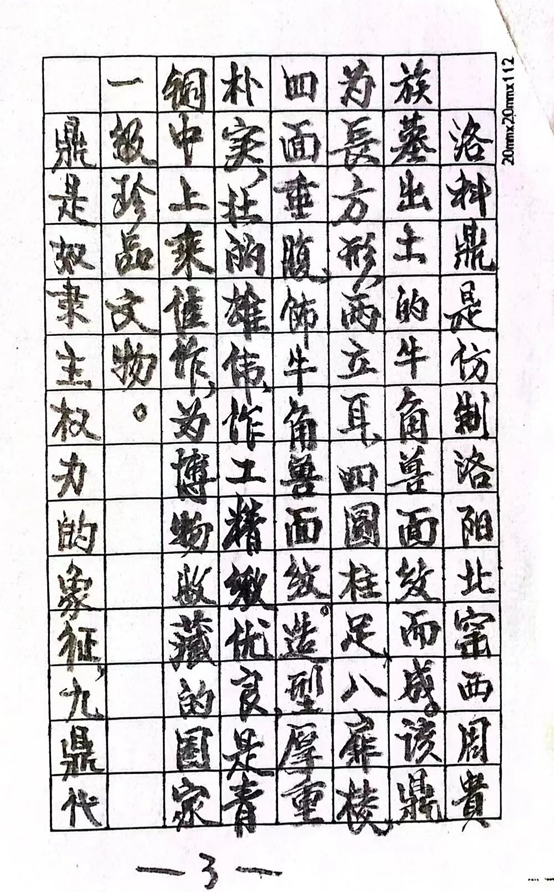 洛料鼎是仿制洛阳北窑西周貴
族墓出土的牛角兽面纹而成。该鼎
为長方形,两立耳、四圆柱足、八扉棱、
四面垂腹,饰牛角兽面纹。造型厚重
朴实,壮的雄伟,作工精緻优良,是青
铜中上乘佳作,为博物收藏的国家
一級珍品文物。
鼎是奴隶主权力的象征,九鼎代
20mmx20mmx112
—3—